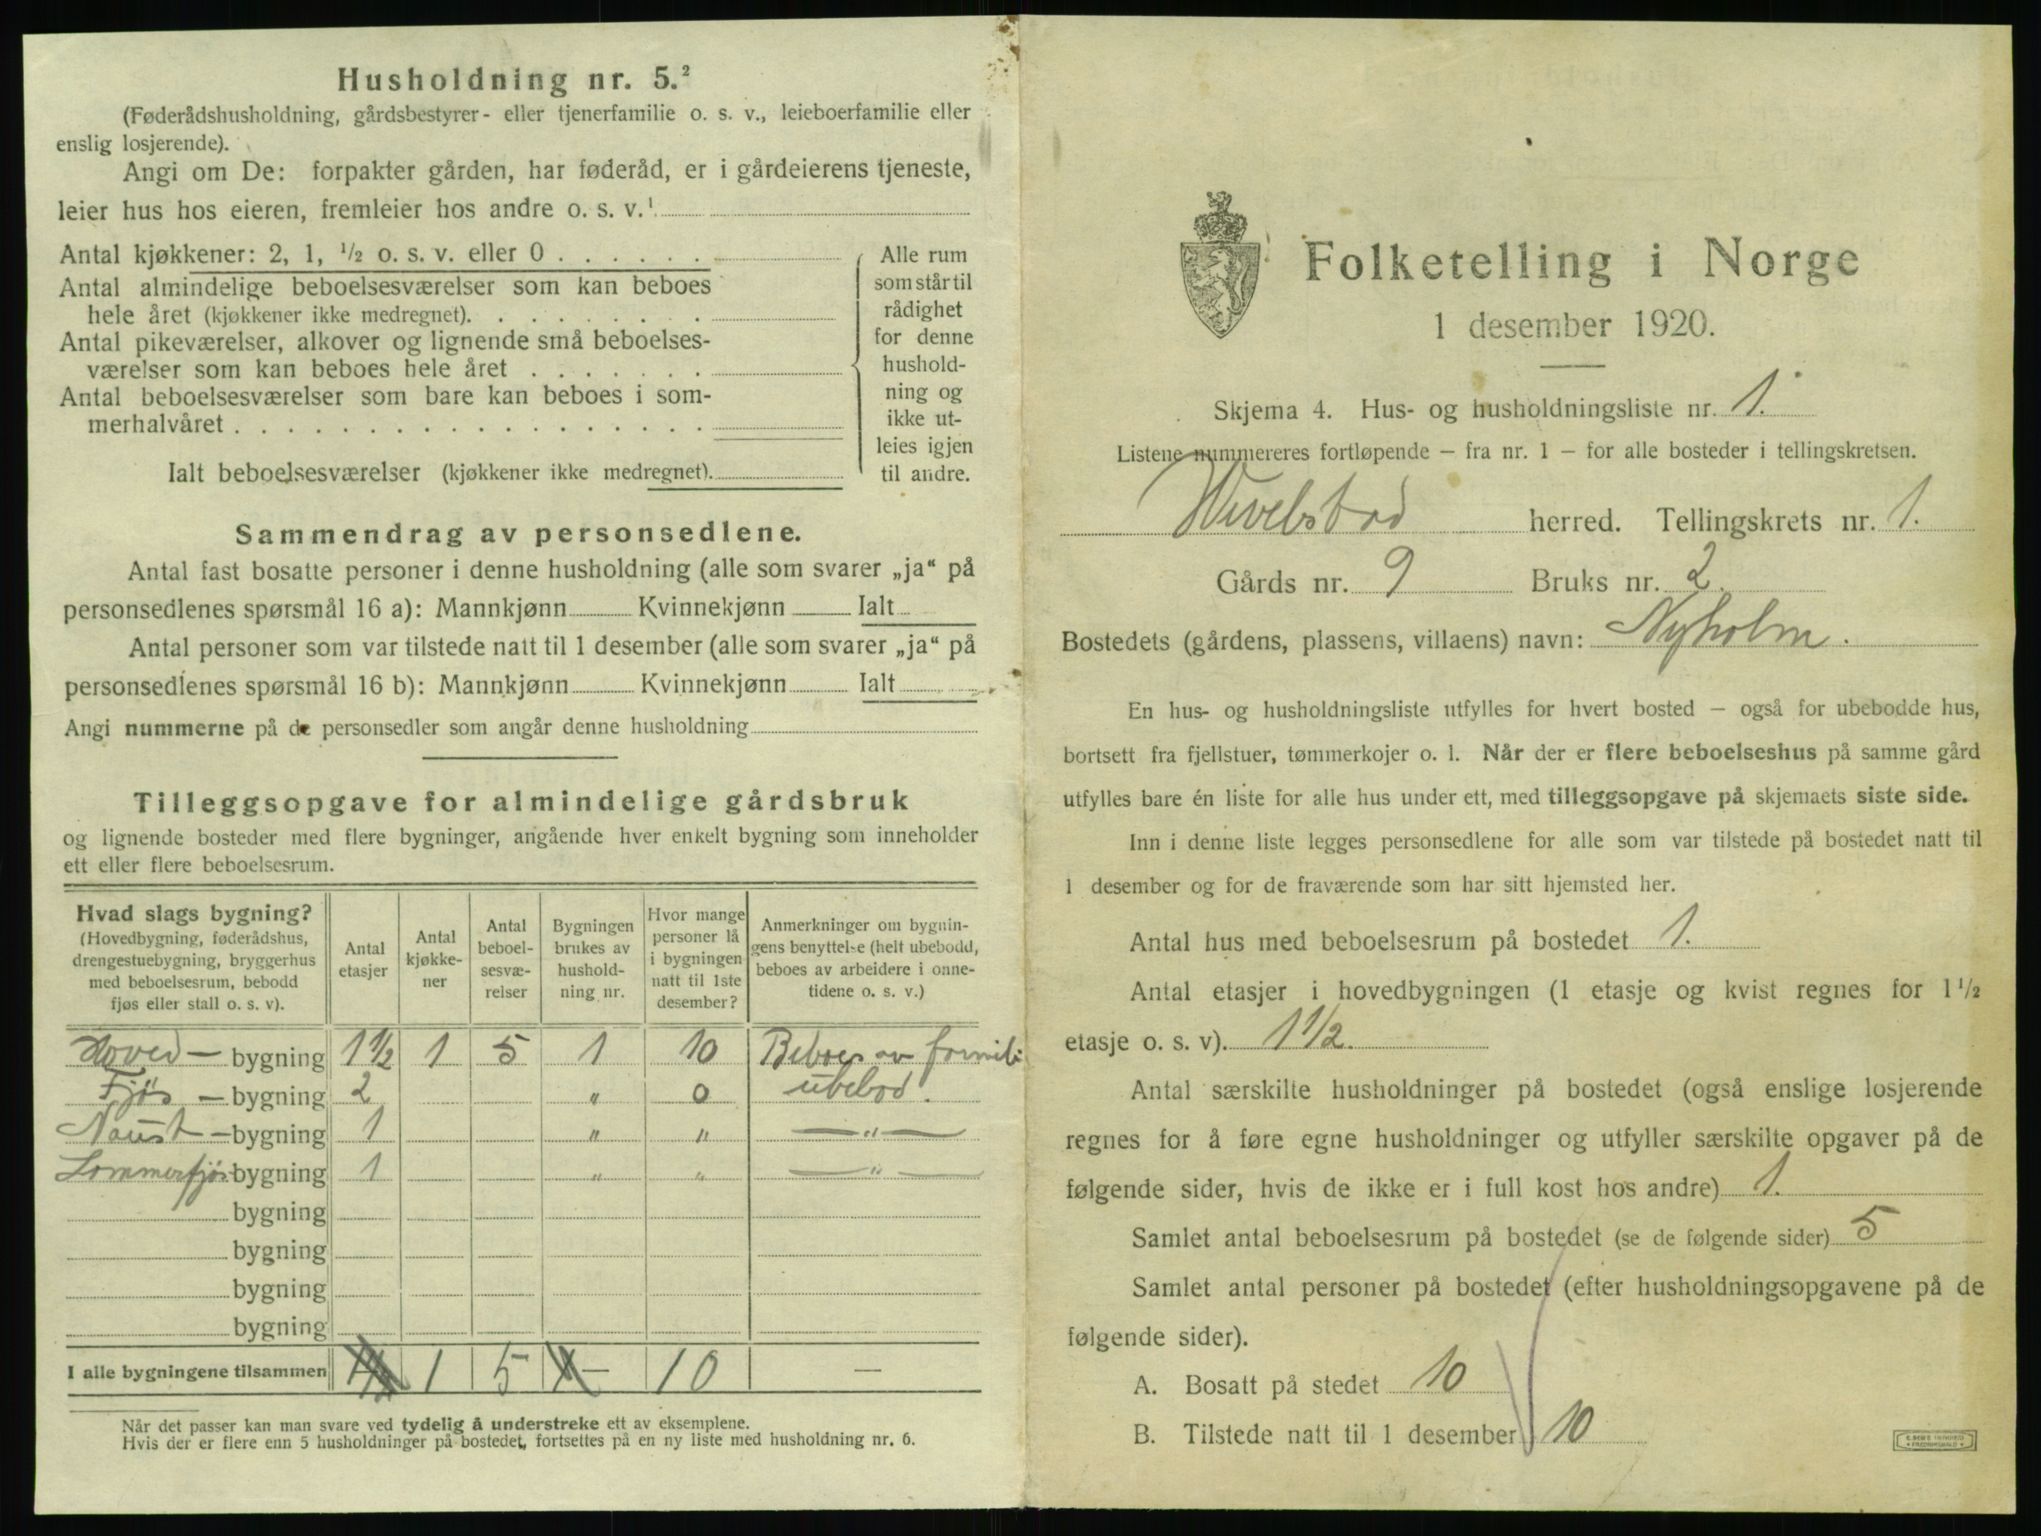 Husholdning nr. 5.²
(Føderådshusholdning, gårdsbestyrer- eller tjenerfamilie o. s. v., leieboerfamilie eller
enslig losjerende).
Angi om De: forpakter gården, har føderåd, er i gårdeierens tjeneste,
leier hus hos eieren, fremleier hos andre o. s. v.¹
Antal kjøkkener: 2, 1, ¹/₂ o. s. v. eller 0 . . . . . .
Antal almindelige beboelsesværelser som kan beboes
hele året (kjøkkener ikke medregnet). . . . . . . .
Antal pikeværelser, alkover og lignende små beboelses-
værelser som kan beboes hele året . . . . . . .
Antal beboelsesværelser som bare kan beboes i som-
merhalvåret . . . . . . . . . . . . . . . . . .
Ialt beboelsesværelser (kjøkkener ikke medregnet).
Alle rum
som står til
rådighet
for denne
hushold-
ning og
ikke ut-
leies igjen
til andre.
Sammendrag av personsedlene.
Antal fast bosatte personer i denne husholdning (alle som svarer „ja“ på
personsedlenes spørsmål 16 a): Mannkjønn Kvinnekjønn Ialt
Antal personer som var tilstede natt til 1 desember (alle som svarer „ja“ på
personsedlenes spørsmål 16 b): Mannkjønn Kvinnekjønn Ialt
Angi nummerne på de personsedler som angår denne husholdning
Tilleggsopgave for almindelige gårdsbruk
og lignende bosteder med flere bygninger, angående hver enkelt bygning som inneholder
ett eller flere beboelsesrum.
Hvad slags bygning?
(Hovedbygning, føderådshus,
drengestuebygning, bryggerhus
med beboelsesrum, bebodd
fjøs eller stall o. s. v).
Antal
etasjer
Antal
kjøkke-
ner
Antal
beboel-
sesvæ-
relser
Bygningen
brukes av
hushold-
ning nr.
Hvor mange
personer lå
i bygningen
natt til 1ste
desember?
Anmerkninger om bygnin-
gens benyttelse (helt ubebodd,
beboes av arbeidere i onne-
tidene o. s. v.)
Hoved – bygning 1½ 1 5 1 10 Beboes av famili
Fjøs – bygning 2 " 0 ubebod.
Naust – bygning 1 " " — " —
Sommerfjøs bygning 1 " " — " —
bygning
bygning
bygning
bygning
I alle bygningene tilsammen 1 5 10 —
Når det passer kan man svare ved tydelig å understreke ett av eksemplene.
Hvis der er flere enn 5 husholdninger på bostedet, fortsettes på en ny liste med husholdning nr. 6.
Folketelling i Norge
1 desember 1920.
Skjema 4. Hus- og husholdningsliste nr. 1.
Listene nummereres fortløpende – fra nr. 1 – for alle bosteder i tellingskretsen.
Wevelstad herred. Tellingskrets nr. 1.
Gårds nr. 9 Bruks nr. 2.
Bostedets (gårdens, plassens, villaens) navn: Nyholm.
En hus- og husholdningsliste utfylles for hvert bosted – også for ubebodde hus,
bortsett fra fjellstuer, tømmerkojer o. l. Når der er flere beboelseshus på samme gård
utfylles bare én liste for alle hus under ett, med tilleggsopgave på skjemaets siste side.
Inn i denne liste legges personsedlene for alle som var tilstede på bostedet natt til
1 desember og for de fraværende som har sitt hjemsted her.
Antal hus med beboelsesrum på bostedet 1.
Antal etasjer i hovedbygningen (1 etasje og kvist regnes for 1¹/₂
etasje o. s. v). 1½.
Antal særskilte husholdninger på bostedet (også enslige losjerende
regnes for å føre egne husholdninger og utfyller særskilte opgaver på de
følgende sider, hvis de ikke er i full kost hos andre) 1.
Samlet antal beboelsesrum på bostedet (se de følgende sider) 5
Samlet antal personer på bostedet (efter husholdningsopgavene på de
følgende sider).
A. Bosatt på stedet 10
B. Tilstede natt til 1 desember 10